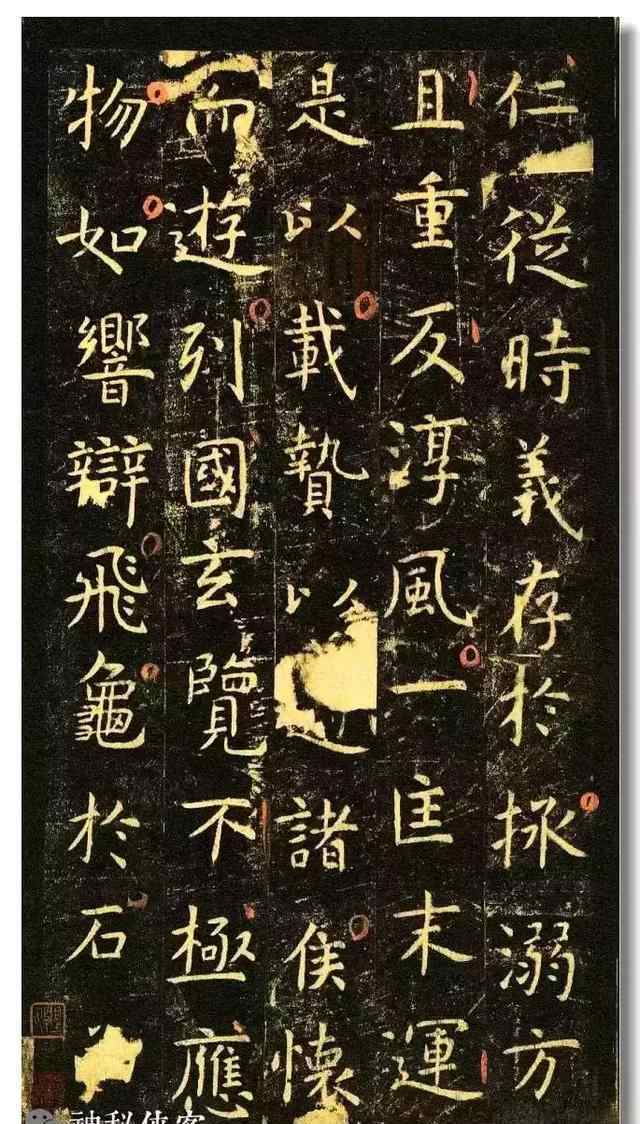 仁從時義存於拯溺方
且重反淳風一匡末運
是以載贄以諸侯懷
而遊列國玄覽不極應
物如響辯飛龜於石
神秘侠客